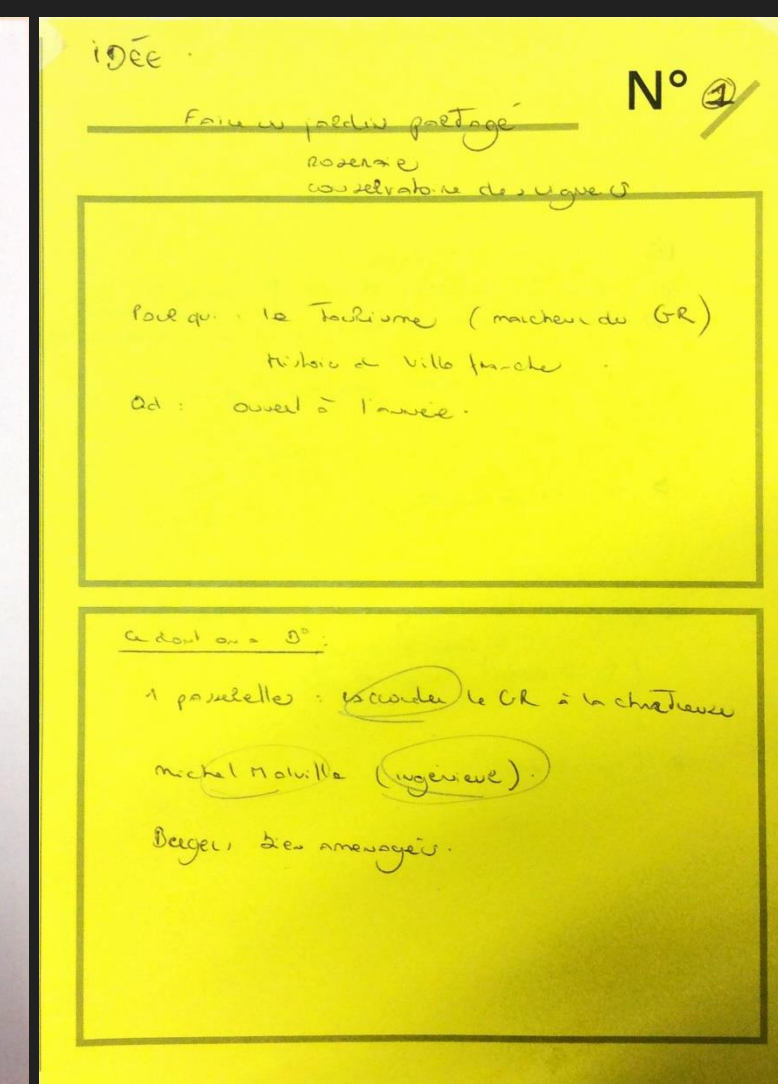 IDÉE.
N° 1
Faire un jardin partagé
roseraie
conservatoire des vignes
Pour qui : le Tourisme (marcheur du GR)
Histoire de Villefranche.
Qd : ouvert à l'année.
Ce dont on a B° :
1 passerelle : raccorder le GR à la chartreuse
Michel Malville (ingénieur).
Berges, bien aménagées.